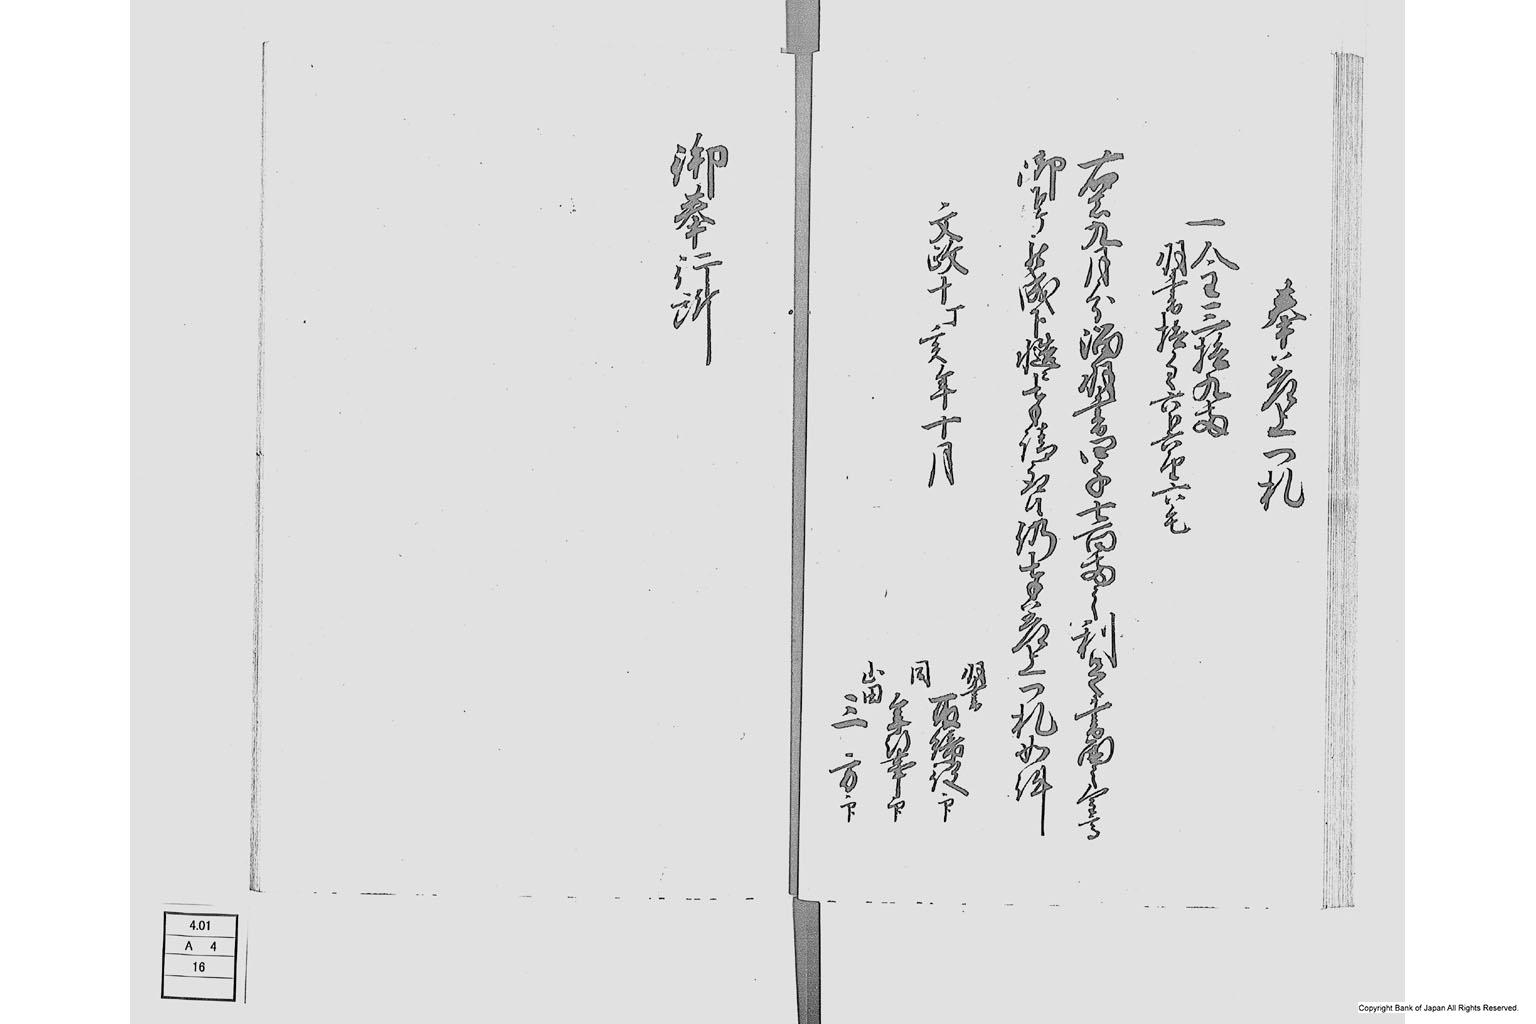 奉差上一札
一金三拾九両
羽書拾匁六分六里六毛
右者九月分溜羽書四千七百両之利足書面之寄
御下ケ被成下慥ニ奉請取候仍奉差上一札如件
文政十丁亥年十月
羽書
取締役印
同
年行事印
山田
三方印
御奉行所
4.01
A 4
16
Copyright Bank of Japan All Rights Reserved.